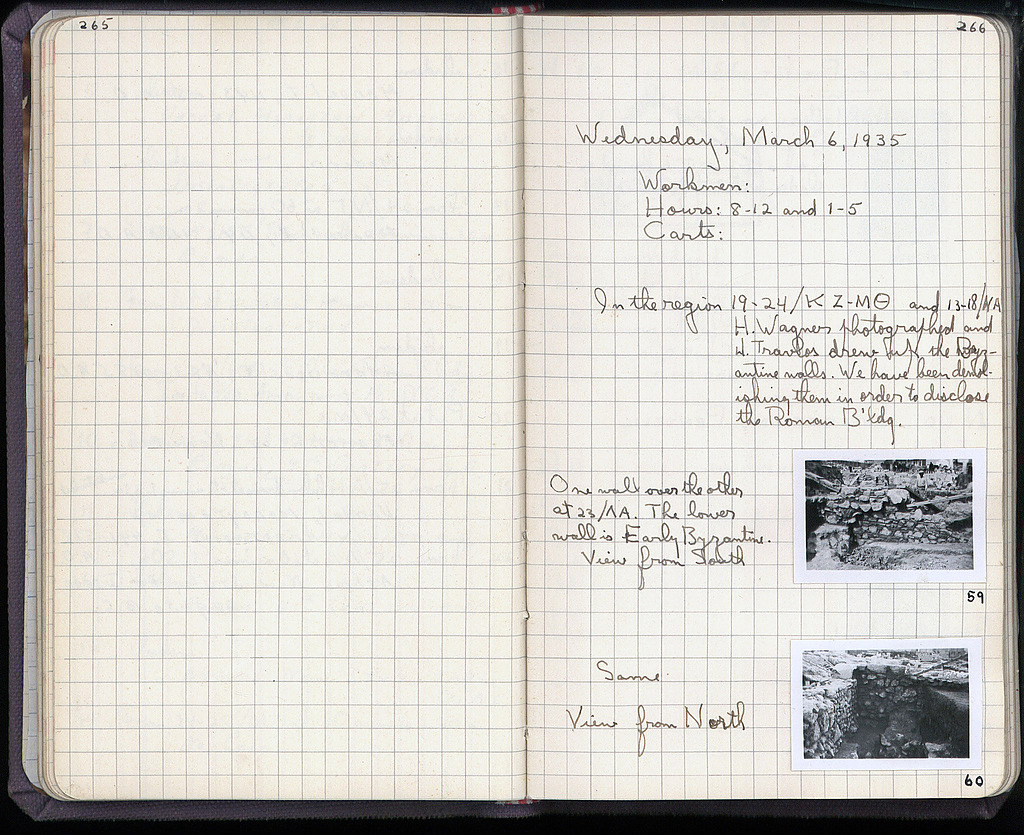 265
266
Wednesday, March 6, 1935
Workmen:
Hours: 8-12 and 1-5
Carts:
In the region 19-24/ΚΖ-ΜΘ and 13-18/ΛΑ
H. Wagner photographed and
H. Travlos drew up the Byz-
antine walls. We have been demol-
ishing them in order to disclose
the Roman B'ldg.
One wall over the other
at 23/ΛΑ. The lower
wall is Early Byzantine.
View from South
59
Same
View from North
60